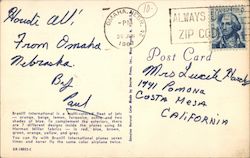 Howdie All!
From Omaha
Nebraska.
By
Paul
OMAHA, NEBR.
PM
ALWAYS
ZIP CO
Post Card
Mrs Lucile
1941 Pomona
Costa Mesa
California
Braniff International is a multi-colored fleet of jet
— orange, beige, lemon, turquoise, ochre and two
shades of blue. To complement the exteriors, there
are 7 different designs inside the planes using 56
Herman Miller fabrics — in red, blue, brown,
green, orange, yellow, and grey.
You can fly with Braniff International planes seven
times and never fly the same color airplane twice.